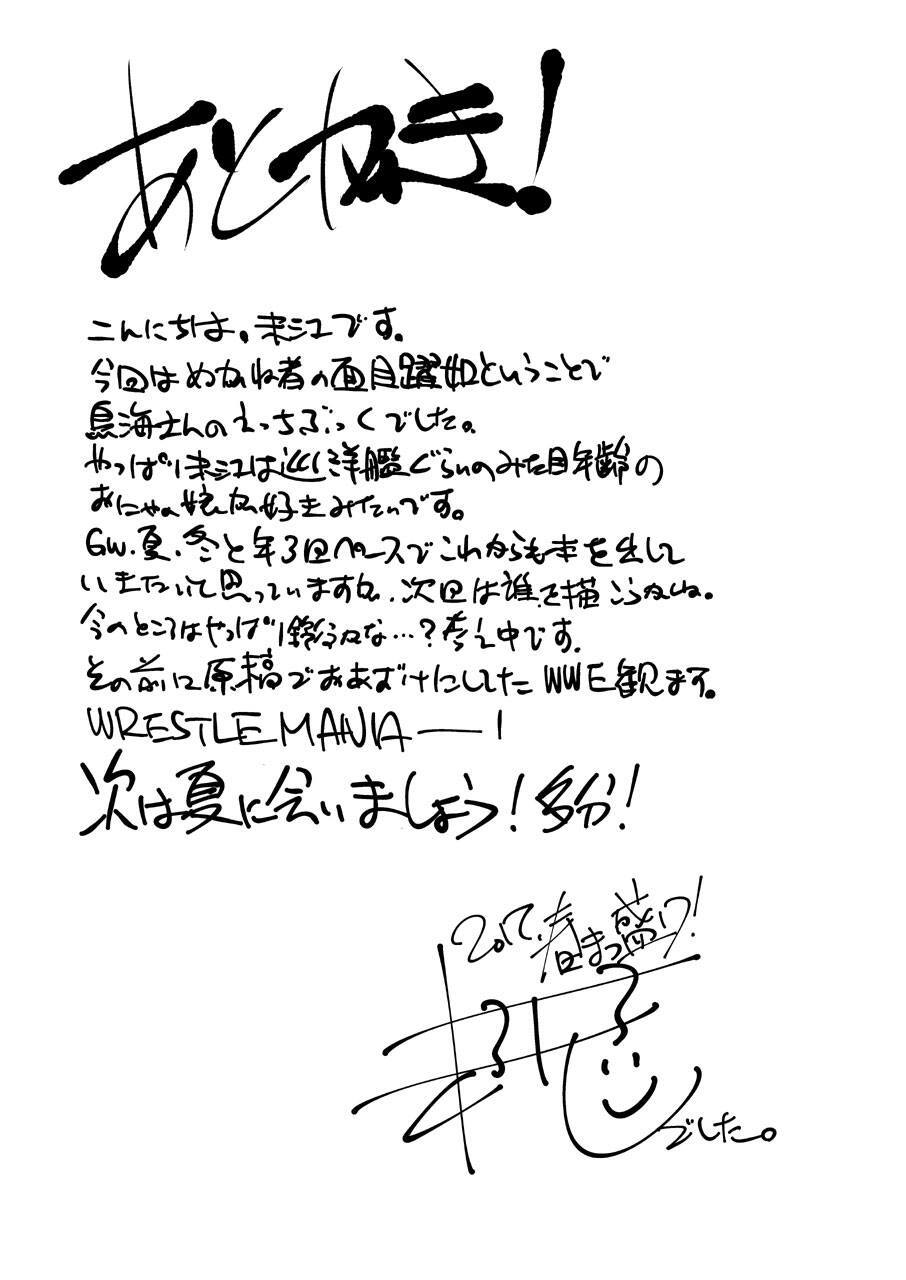 あとがき!
こんにちは。末江です。
今回はめがね者の面目躍如ということで
鳥海さんのえっちぶっくでした。
やっぱり末江は巡洋艦ぐらいのみた目年齢の
おにゃの娘が好きみたいです。
GW、夏、冬と年3回ペースでこれからも本を出して
いきたいって思っていますが、次回は誰を描こうかしね。
今のところはやっぱり鈴谷かな…?考え中です。
その前に原稿でおあずけにしてたWWE観ます。
WRESTLE MANIA——!
次は夏に会いましょう!多分!
2017.春まっ盛り!
でした。